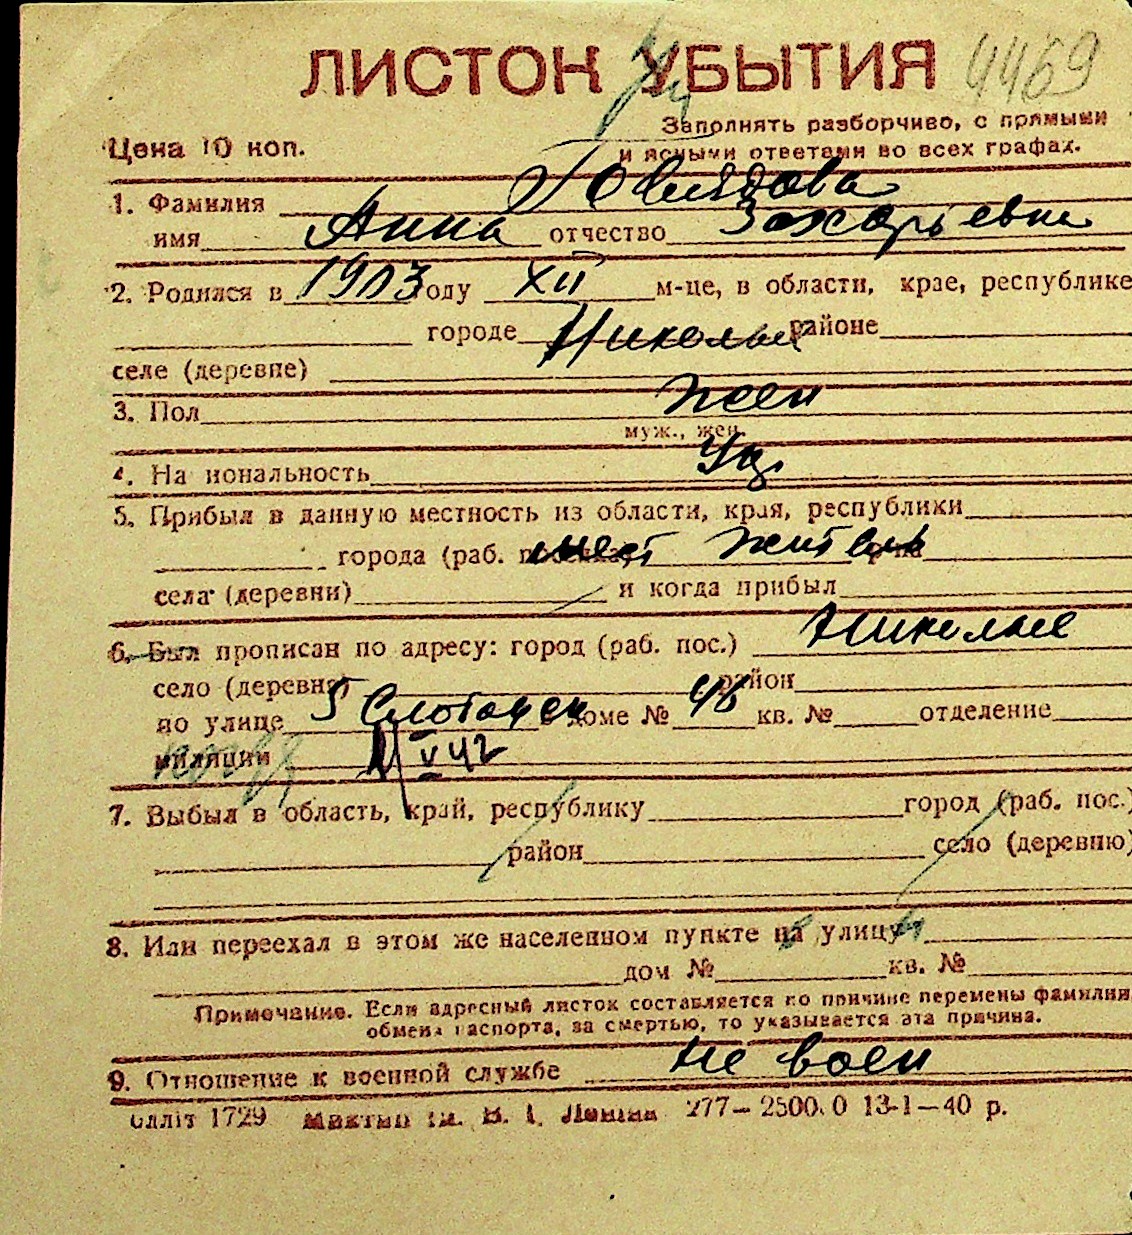 ЛИСТОК УБЫТИЯ 4469
Заполнять разборчиво, с прямыми
Цена 10 коп. и ясными ответами во всех графах.
1. Фамилия
имя Анна отчество Захарьевна
2. Родился в 1903 году XII м-це, в области, крае, республике
городе Николаев районе
селе (деревне)
3. Пол жен
муж., жен.
4. Национальность Ук.
5. Прибыл в данную местность из области, края, республики
города (раб. поселка) мест житель
села (деревни) и когда прибыл
6. Был прописан по адресу: город (раб. пос.) Николаев
село (деревня) район
по улице 5 Слободск доме № 46 кв. № отделение
милиции V 42
7. Выбыл в область, край, республику город (раб. пос.)
район село (деревню)
8. Или переехал в этом же населенном пункте на улицу
дом № кв. №
Примечание. Если адресный листок составляется по причине перемены фамилии,
обмена паспорта, за смертью, то указывается эта причина.
9. Отношение к военной службе не воен
Оллiт 1729 277—2500.0 13-1—40 р.